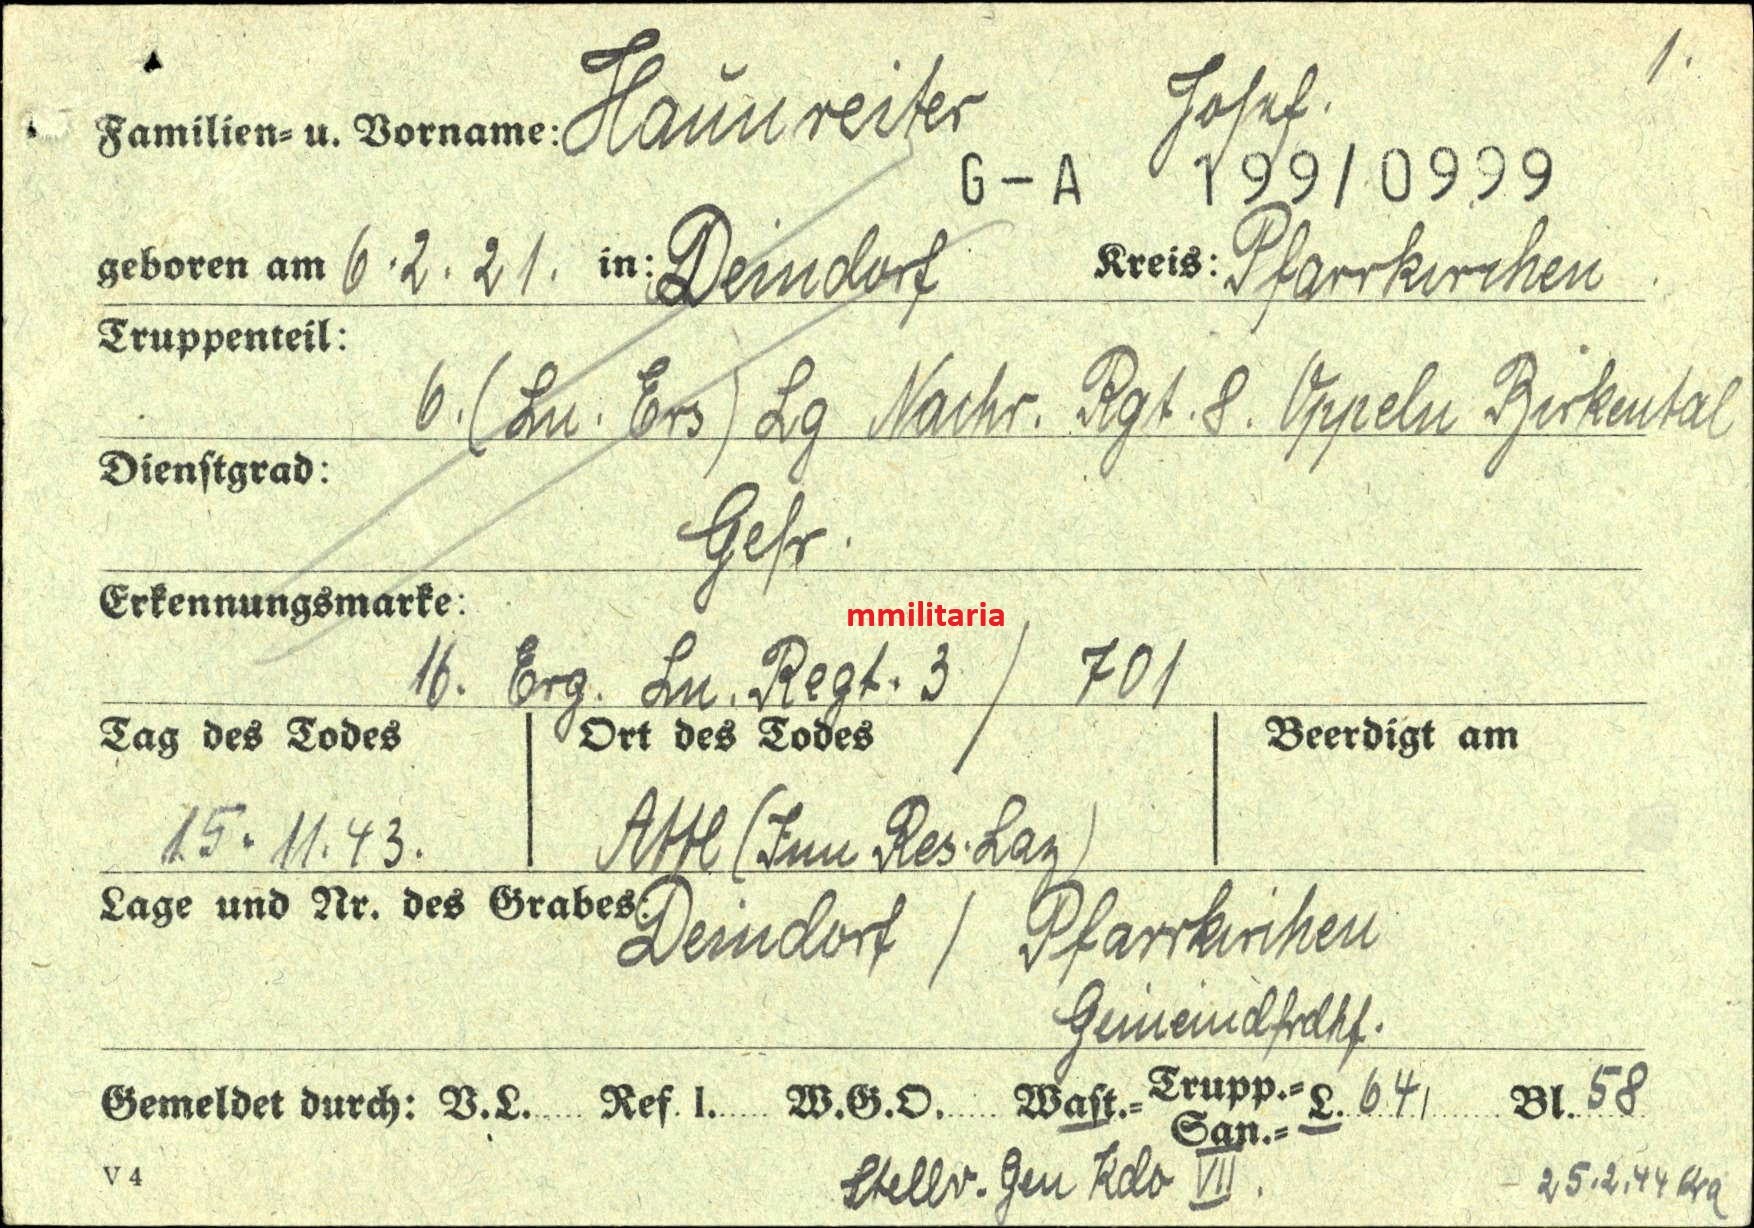 1.
Familien= u. Vorname: Haunreiter Josef.
G-A 199/0999
geboren am 6.2.21. in: Deindorf Kreis: Pfarrkirchen
Truppenteil:
6. (Ln. Ers) Lg Nachr. Rgt. 8. Oppeln Birkental
Dienstgrad:
Gefr.
Erkennungsmarke:
mmilitaria
16. Erg. Ln. Regt. 3 / 701
Tag des Todes Ort des Todes Beerdigt am
15.11.43. Attl (Inn Res. Laz)
Lage und Nr. des Grabes: Deindorf / Pfarrkirchen
Gemeindfrdhf.
Gemeldet durch: V.L. Ref. I. W.G.O. Wast.= Trupp.= San.= L. 641 Bl. 58
Stellv. Gen Kdo VII.
V 4 25.2.44